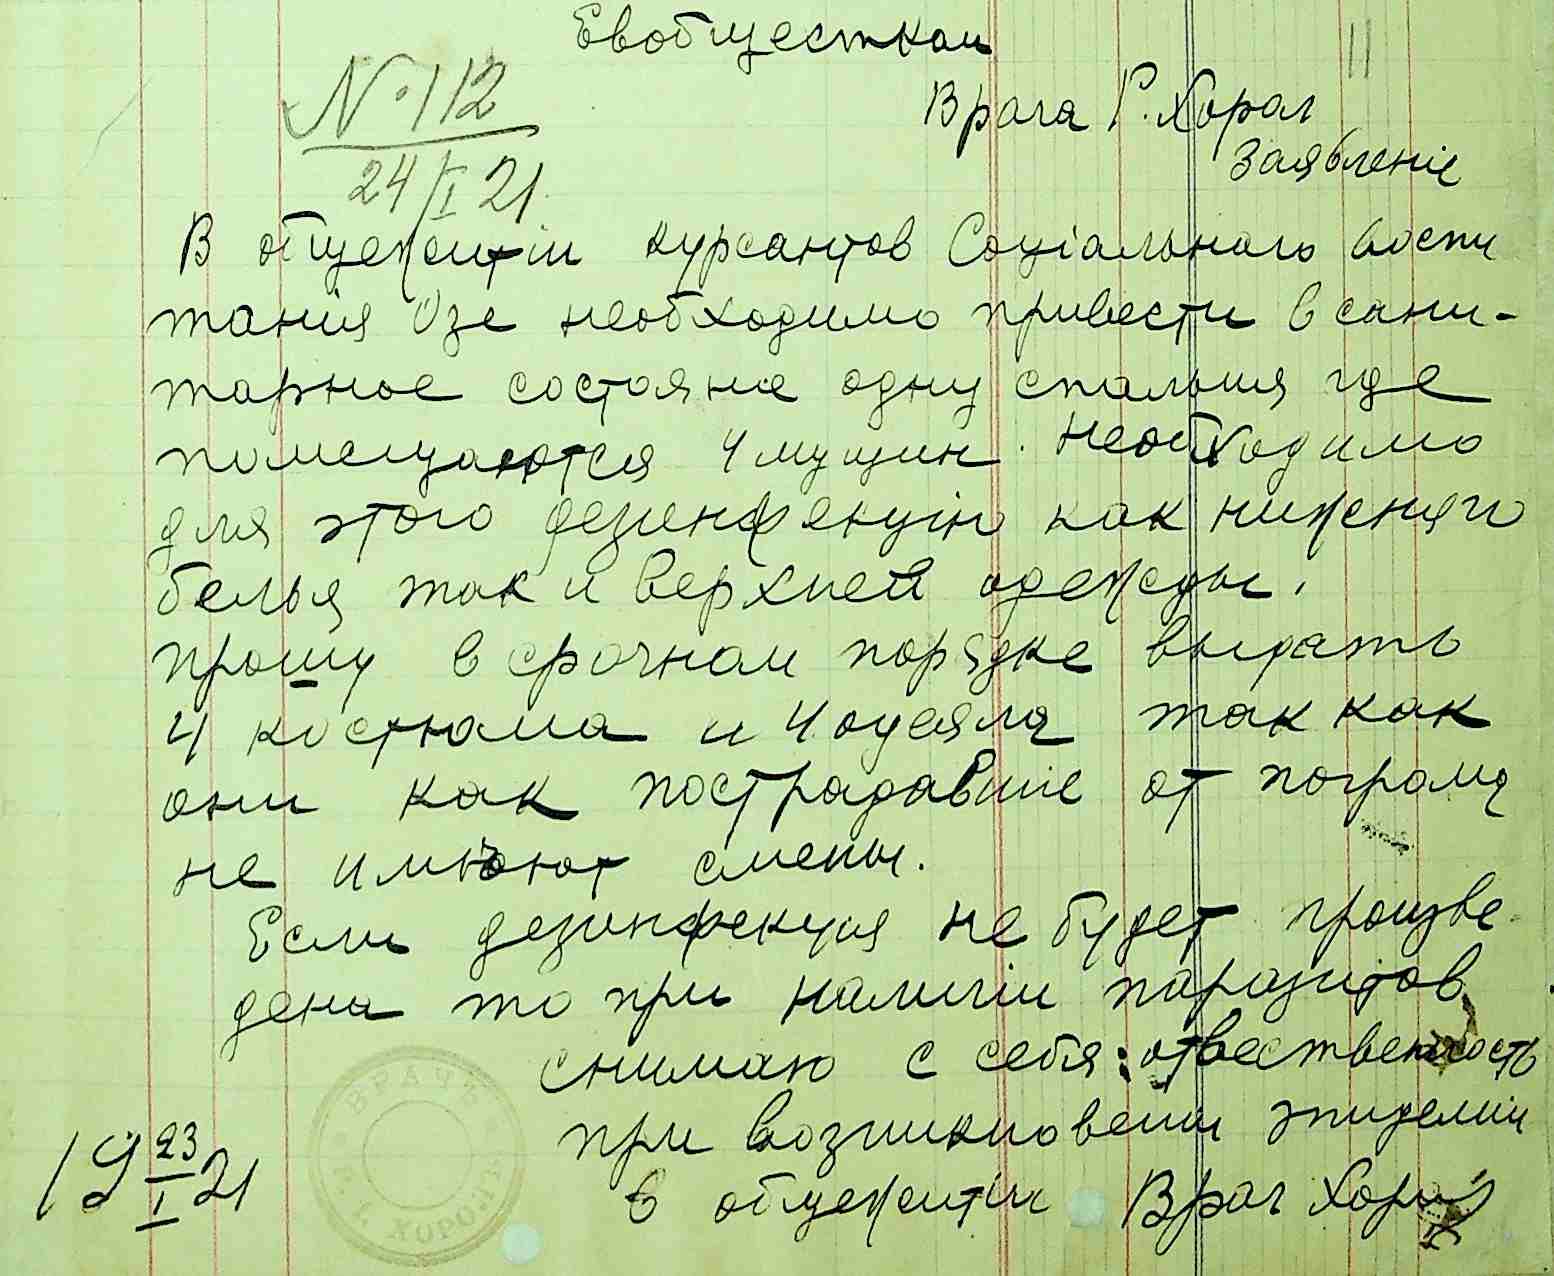 Евобщестком
11
№ 112
Врача Г. Хорол
24/I 21.
Заявленіе
В общежитіи курсантов Соціального воспи
танія Озе необходимо привести в сани-
тарное состояние одну спальня где
помещаются 4 мущин. Необходимо
для этого дезенфекцію как нижняго
белья так и верхней одежды.
прошу в срочном порядке выдать
4 костюма и 4 одеяла так как
они как пострадавшіе от погрома
не имѣют смены.
Если дезинфекция не будет произве
дена то при наличіи паразитов
снимаю с себя отвественность
при возникновеніи эпидеміи
в общежитіи Врач Хорол
19 23/I 21
ВРАЧЪ
ХОРОЛЪ